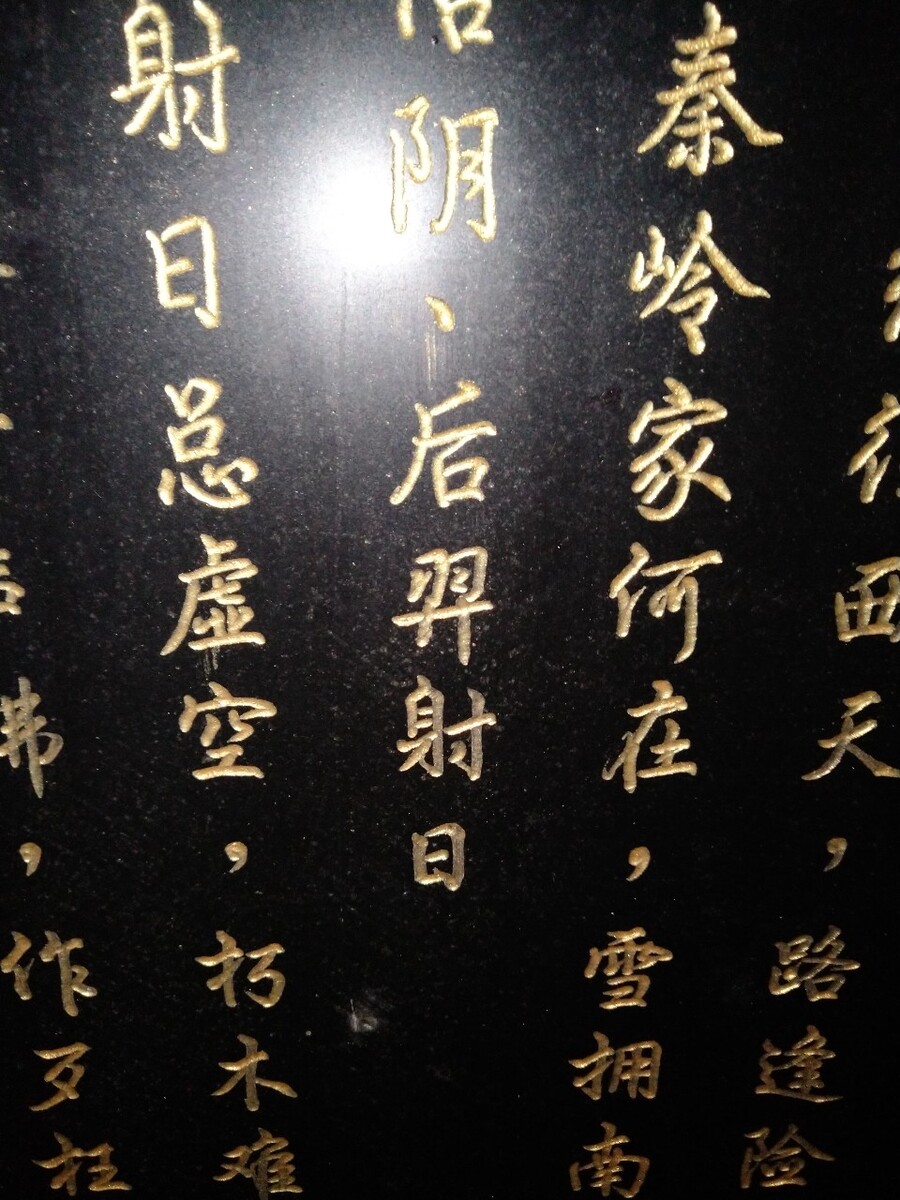 往西天，路逢险
秦岭家何在，雪拥南
阴、后羿射日
射日总虚空，朽木难
弗，作歹枉